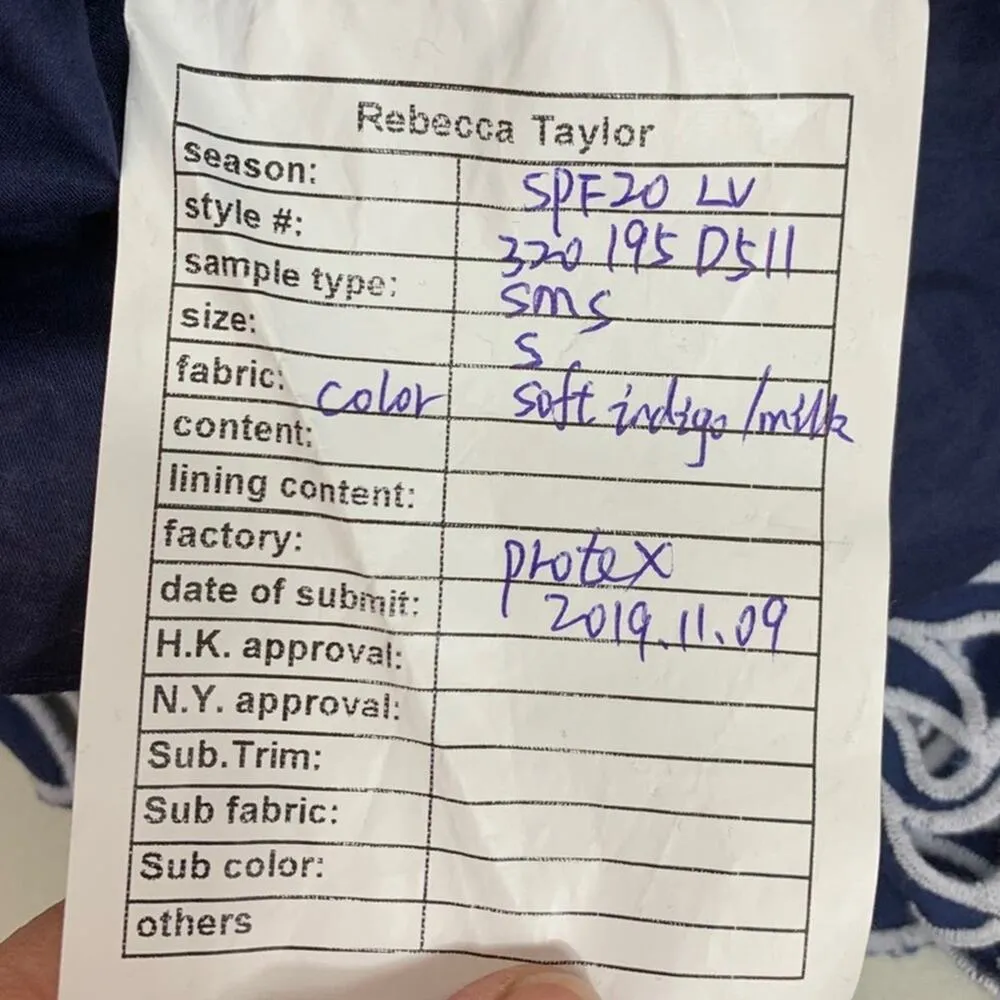 Rebecca Taylor
season: SPF20 LV
style #: 320195D511
sample type: SMS
size: S
fabric: color soft indigo/milk
content:
lining content:
factory: protex
date of submit: 2019.11.09
H.K. approval:
N.Y. approval:
Sub.Trim:
Sub fabric:
Sub color:
others